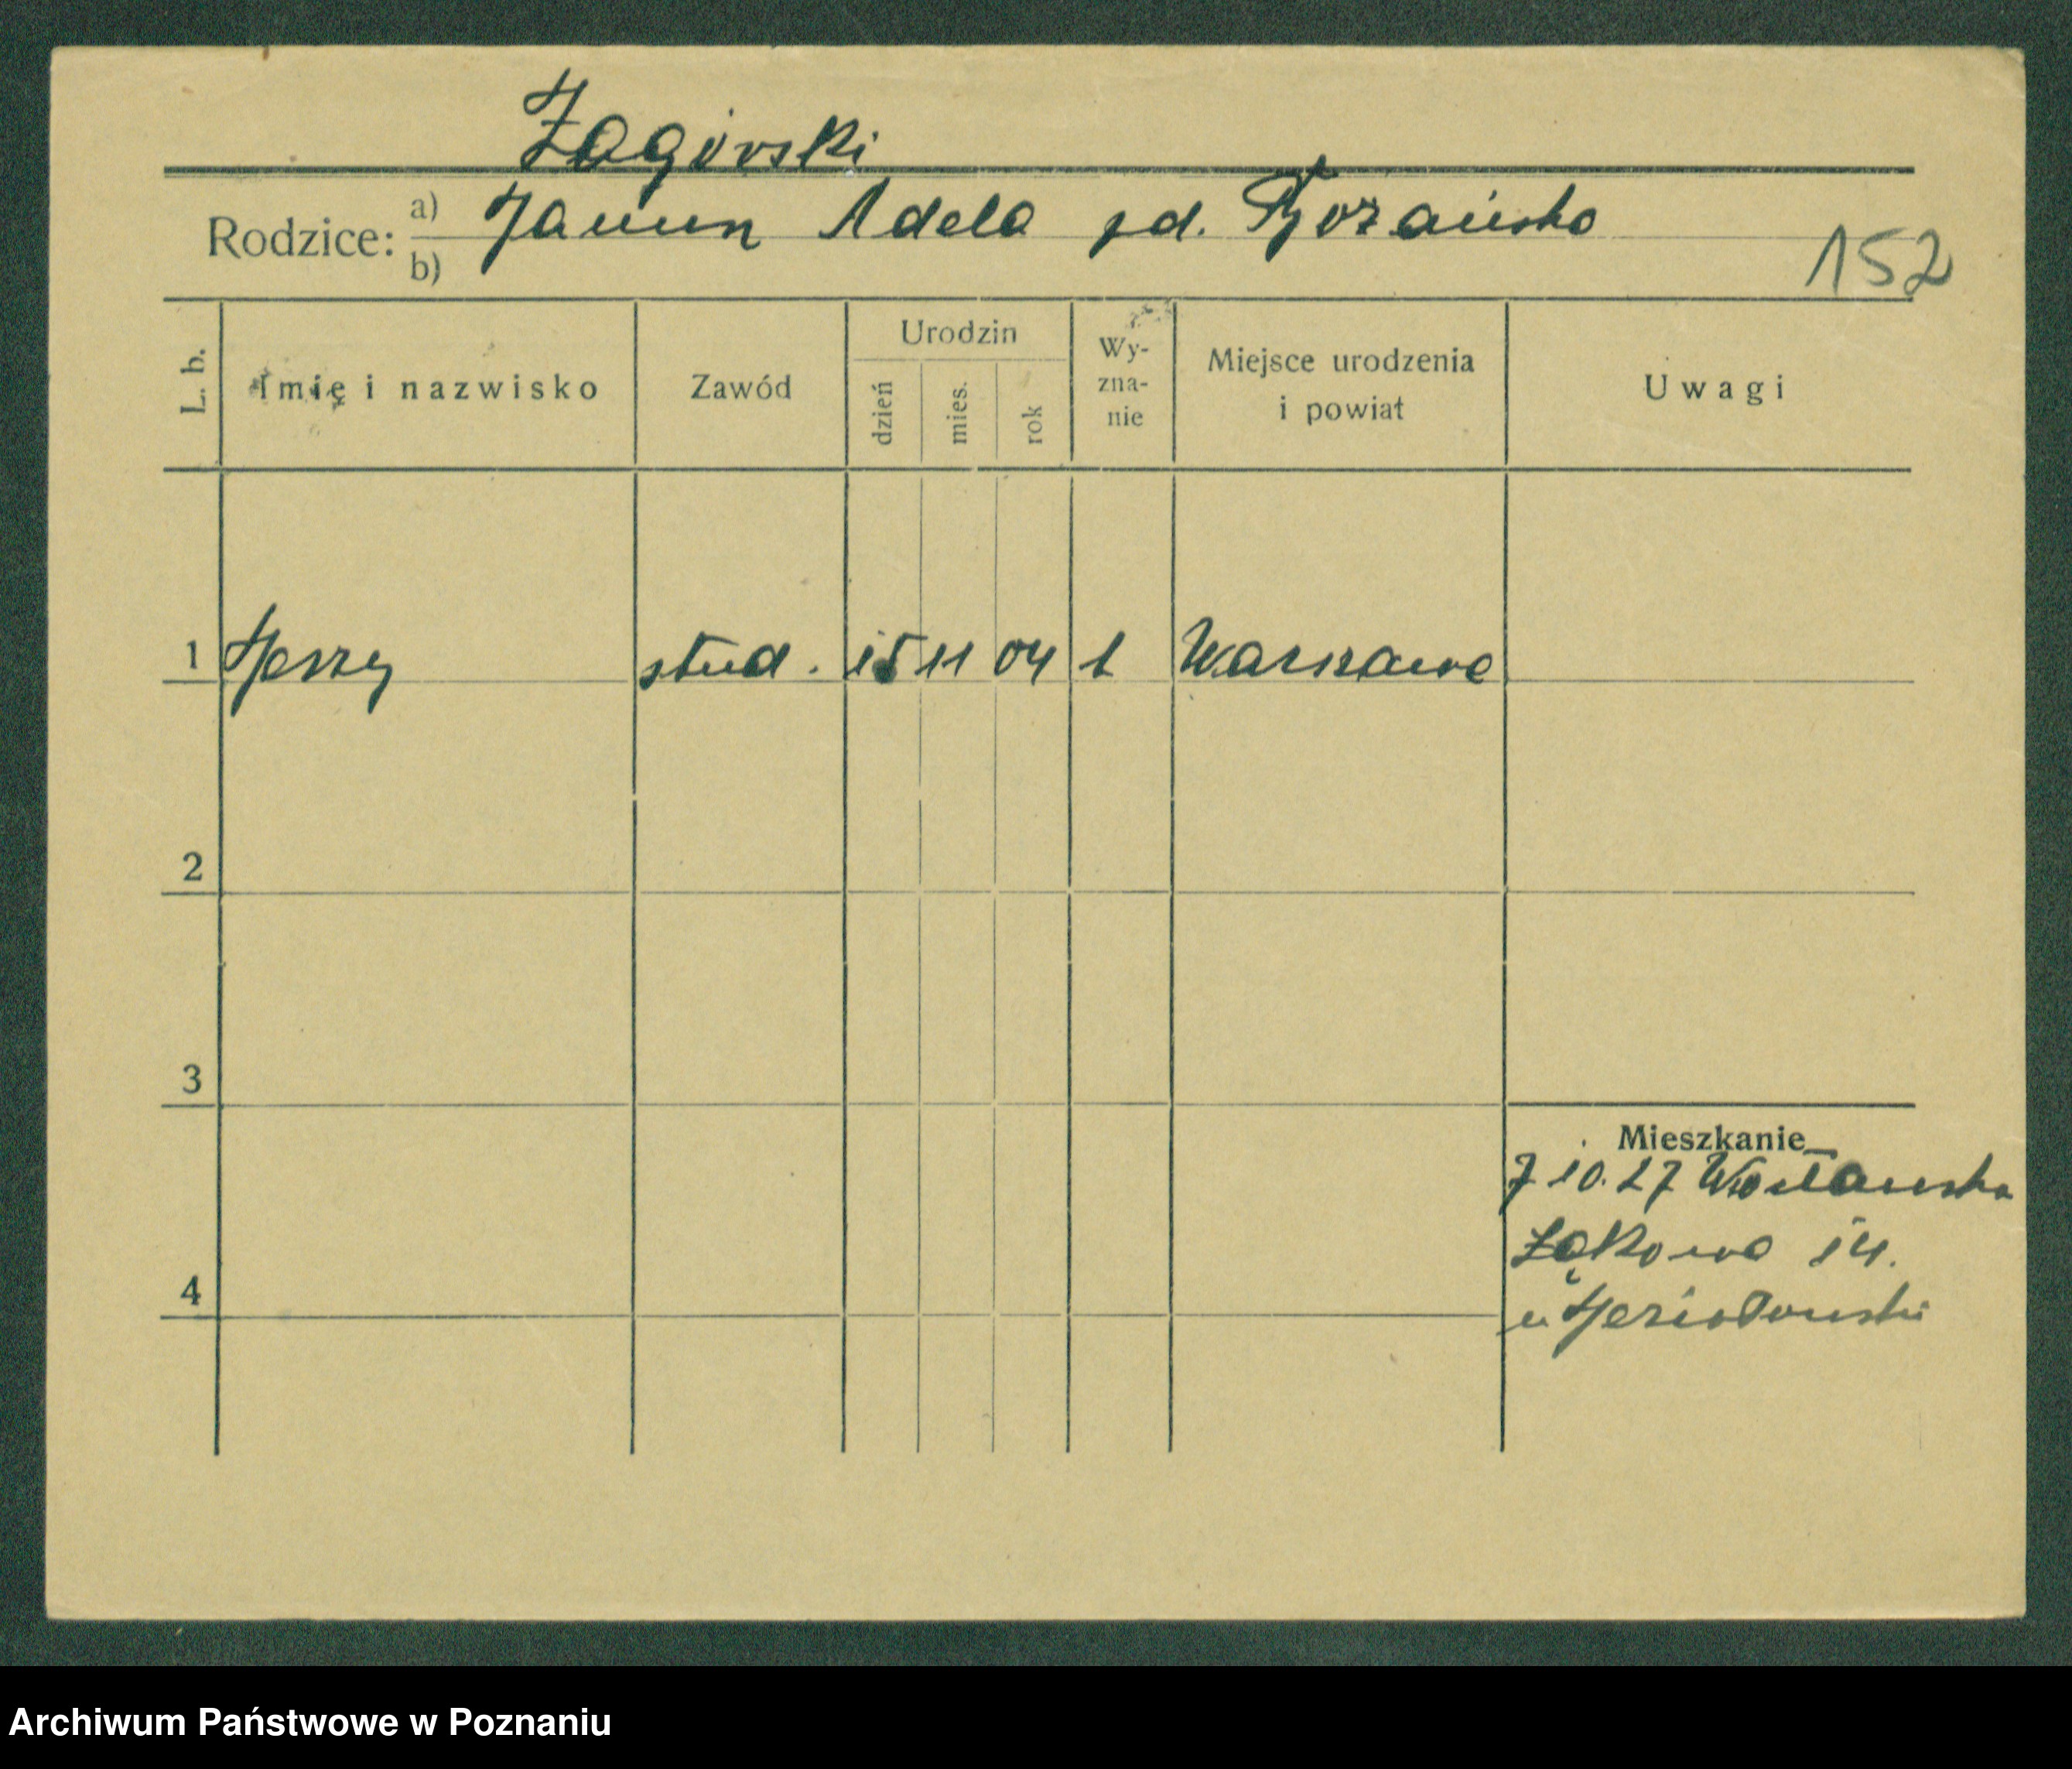 Zagórski
Rodzice: a) Adela
b)
152
L. b. Imię i nazwisko Zawód Urodzin dzień mies. rok Wy-zna-nie Miejsce urodzenia i powiat Uwagi
1 Jerzy stud. 15 11 04 Warszawa
2
3
Mieszkanie
7 10. 27
Łąkowa 14.
4
u
Archiwum Państwowe w Poznaniu